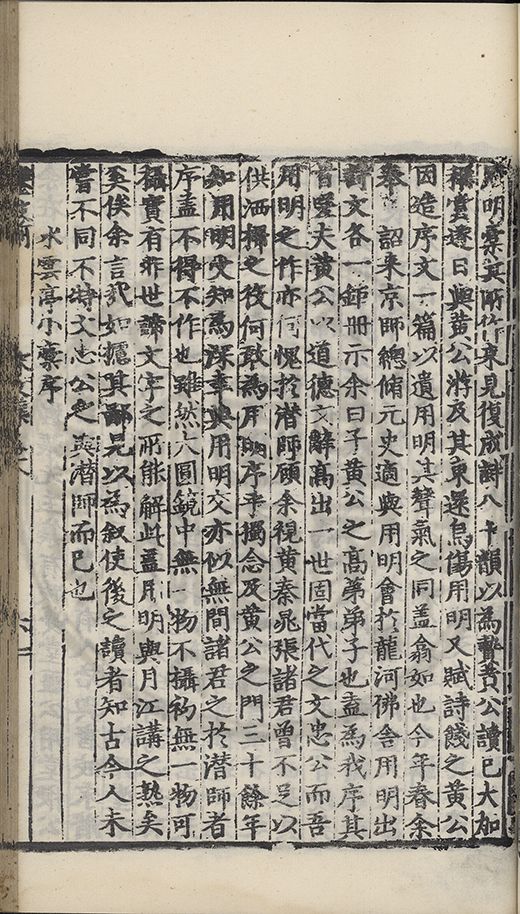 明橐其所作來見復成詩八十韻以為贄黃公讀已大加
稱賞遂日與黃公游及其東還烏傷用明又賦詩餞之黃公
因造序文一篇以遺用明其聲氣之同盖翕如也今年春余
奉 詔来京師總脩元史適與用明會於龍河佛舍用明出
詩文各一鉅冊示余曰子黃公之高弟弟子也盍為我序其
首嗟夫黃公以道德文辭高出一世固當代之文忠公而吾
用明之作亦何愧於潜師顧余視黃秦晁張諸君曾不足以
供洒掃之役何敢為用明序乎獨念及黃公之門三十餘年
知用明受知為深幸與用明交亦似無間諸君之於潜師者
序盖不得不作也雖然大圓鏡中無一物不攝初無一物可
攝實有非世諦文字之所能解此盖用明與月江講之熟矣
奚俟余言哉如攄其鄙見以為叙使後之讀者知古今人未
嘗不同不特文忠公之與潜師而已也
水雲亭小藁序